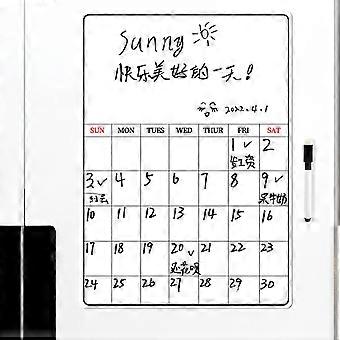 Sunny
快乐美好的一天!
2022.4.1
SUN MON TUES WED THUR FRI SAT
1 2
发工资
3 4 5 6 7 8 9
买牛奶
10 11 12 13 14 15 16
17 18 19 20 21 22 23
还花呗
24 25 26 27 28 29 30